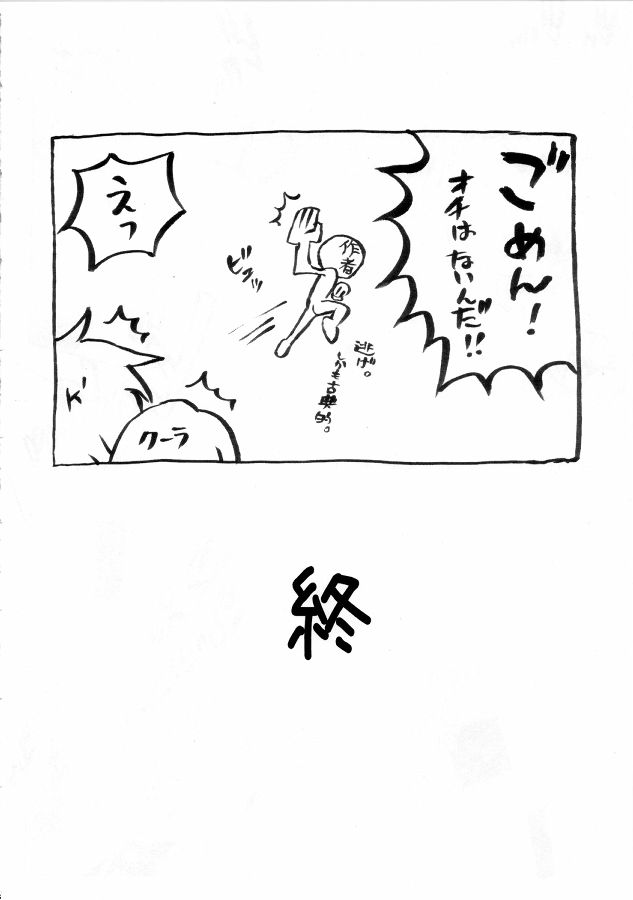 ごめん!
オチはないんだ!!
作者
ビュッ
逃げ。
しかも古典的。
えっ
K'
クーラ
終